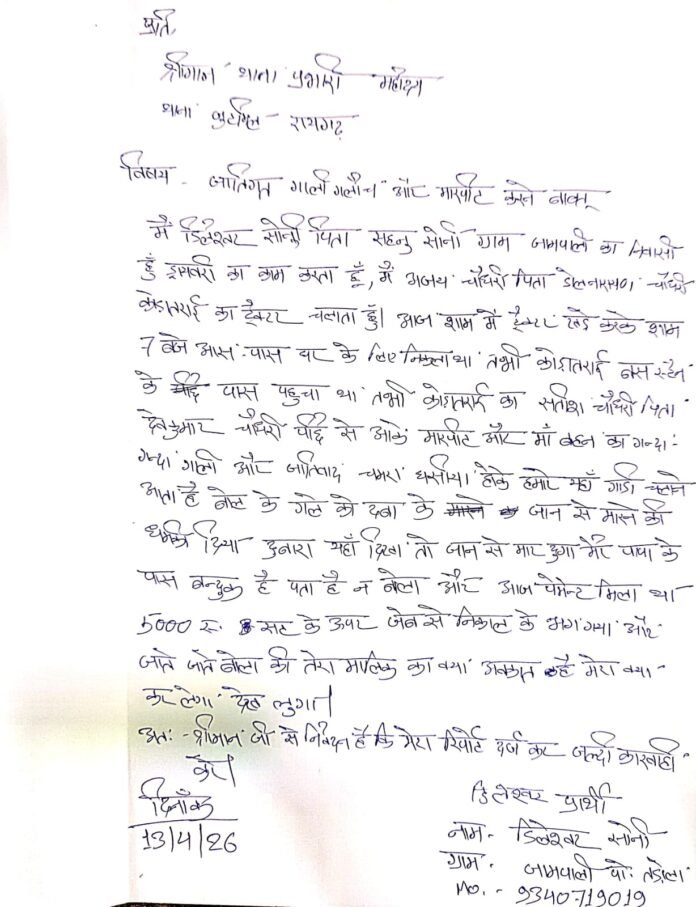 प्रति,
श्रीमान थाना प्रभारी महोदय
थाना जुटमिल - रायगढ़
विषय - जातिगत गाली गलौच और मारपीट करने बाबत्
मैं डिलेश्वर सोनी पिता सहनु सोनी ग्राम जामपाली का निवासी
हुँ ड्राइवरी का काम करता हूँ, मैं अजय चौधरी पिता डोलनारायण चौधरी
कोडातराई का ट्रैक्टर चलाता हुँ। आज शाम में ट्रैक्टर खड़े करके शाम
7 बजे आस-पास घर के लिए निकला था तभी कोडातराई बस स्टैण्ड
के पास पहुचा था तभी कोडातराई का सतीश चौधरी पिता
देवकुमार चौधरी पीछे से आके मारपीट और माँ बहन का गन्दा-
गन्दा गाली और जातिवाद चमरा घसीया होके हमारे यहाँ गाडी चलाने
आता है बोल के गले को दबा के जान से मारने की
धमकि दिया दुबारा यहाँ दिखा तो जान से मार दुगा मेरे पापा के
पास बन्दुक है पता है न बोला और आज पेमेन्ट मिला था
5000 रु. सर्ट के ऊपर जेब से निकाल के भाग गया और
जाते जाते बोला की तेरा मालिक का क्या अवकात है मेरा क्या
कर लेगा देख लुगा।
अतः - श्रीमान जी से निवेदन है कि मेरा रिपोर्ट दर्ज कर जल्दी कारवाही
करें।
दिनाँक
13/4/26
डिलेश्वर प्रार्थी
नाम - डिलेश्वर सोनी
ग्राम - जामपाली पो.
Mo. - 9340719019